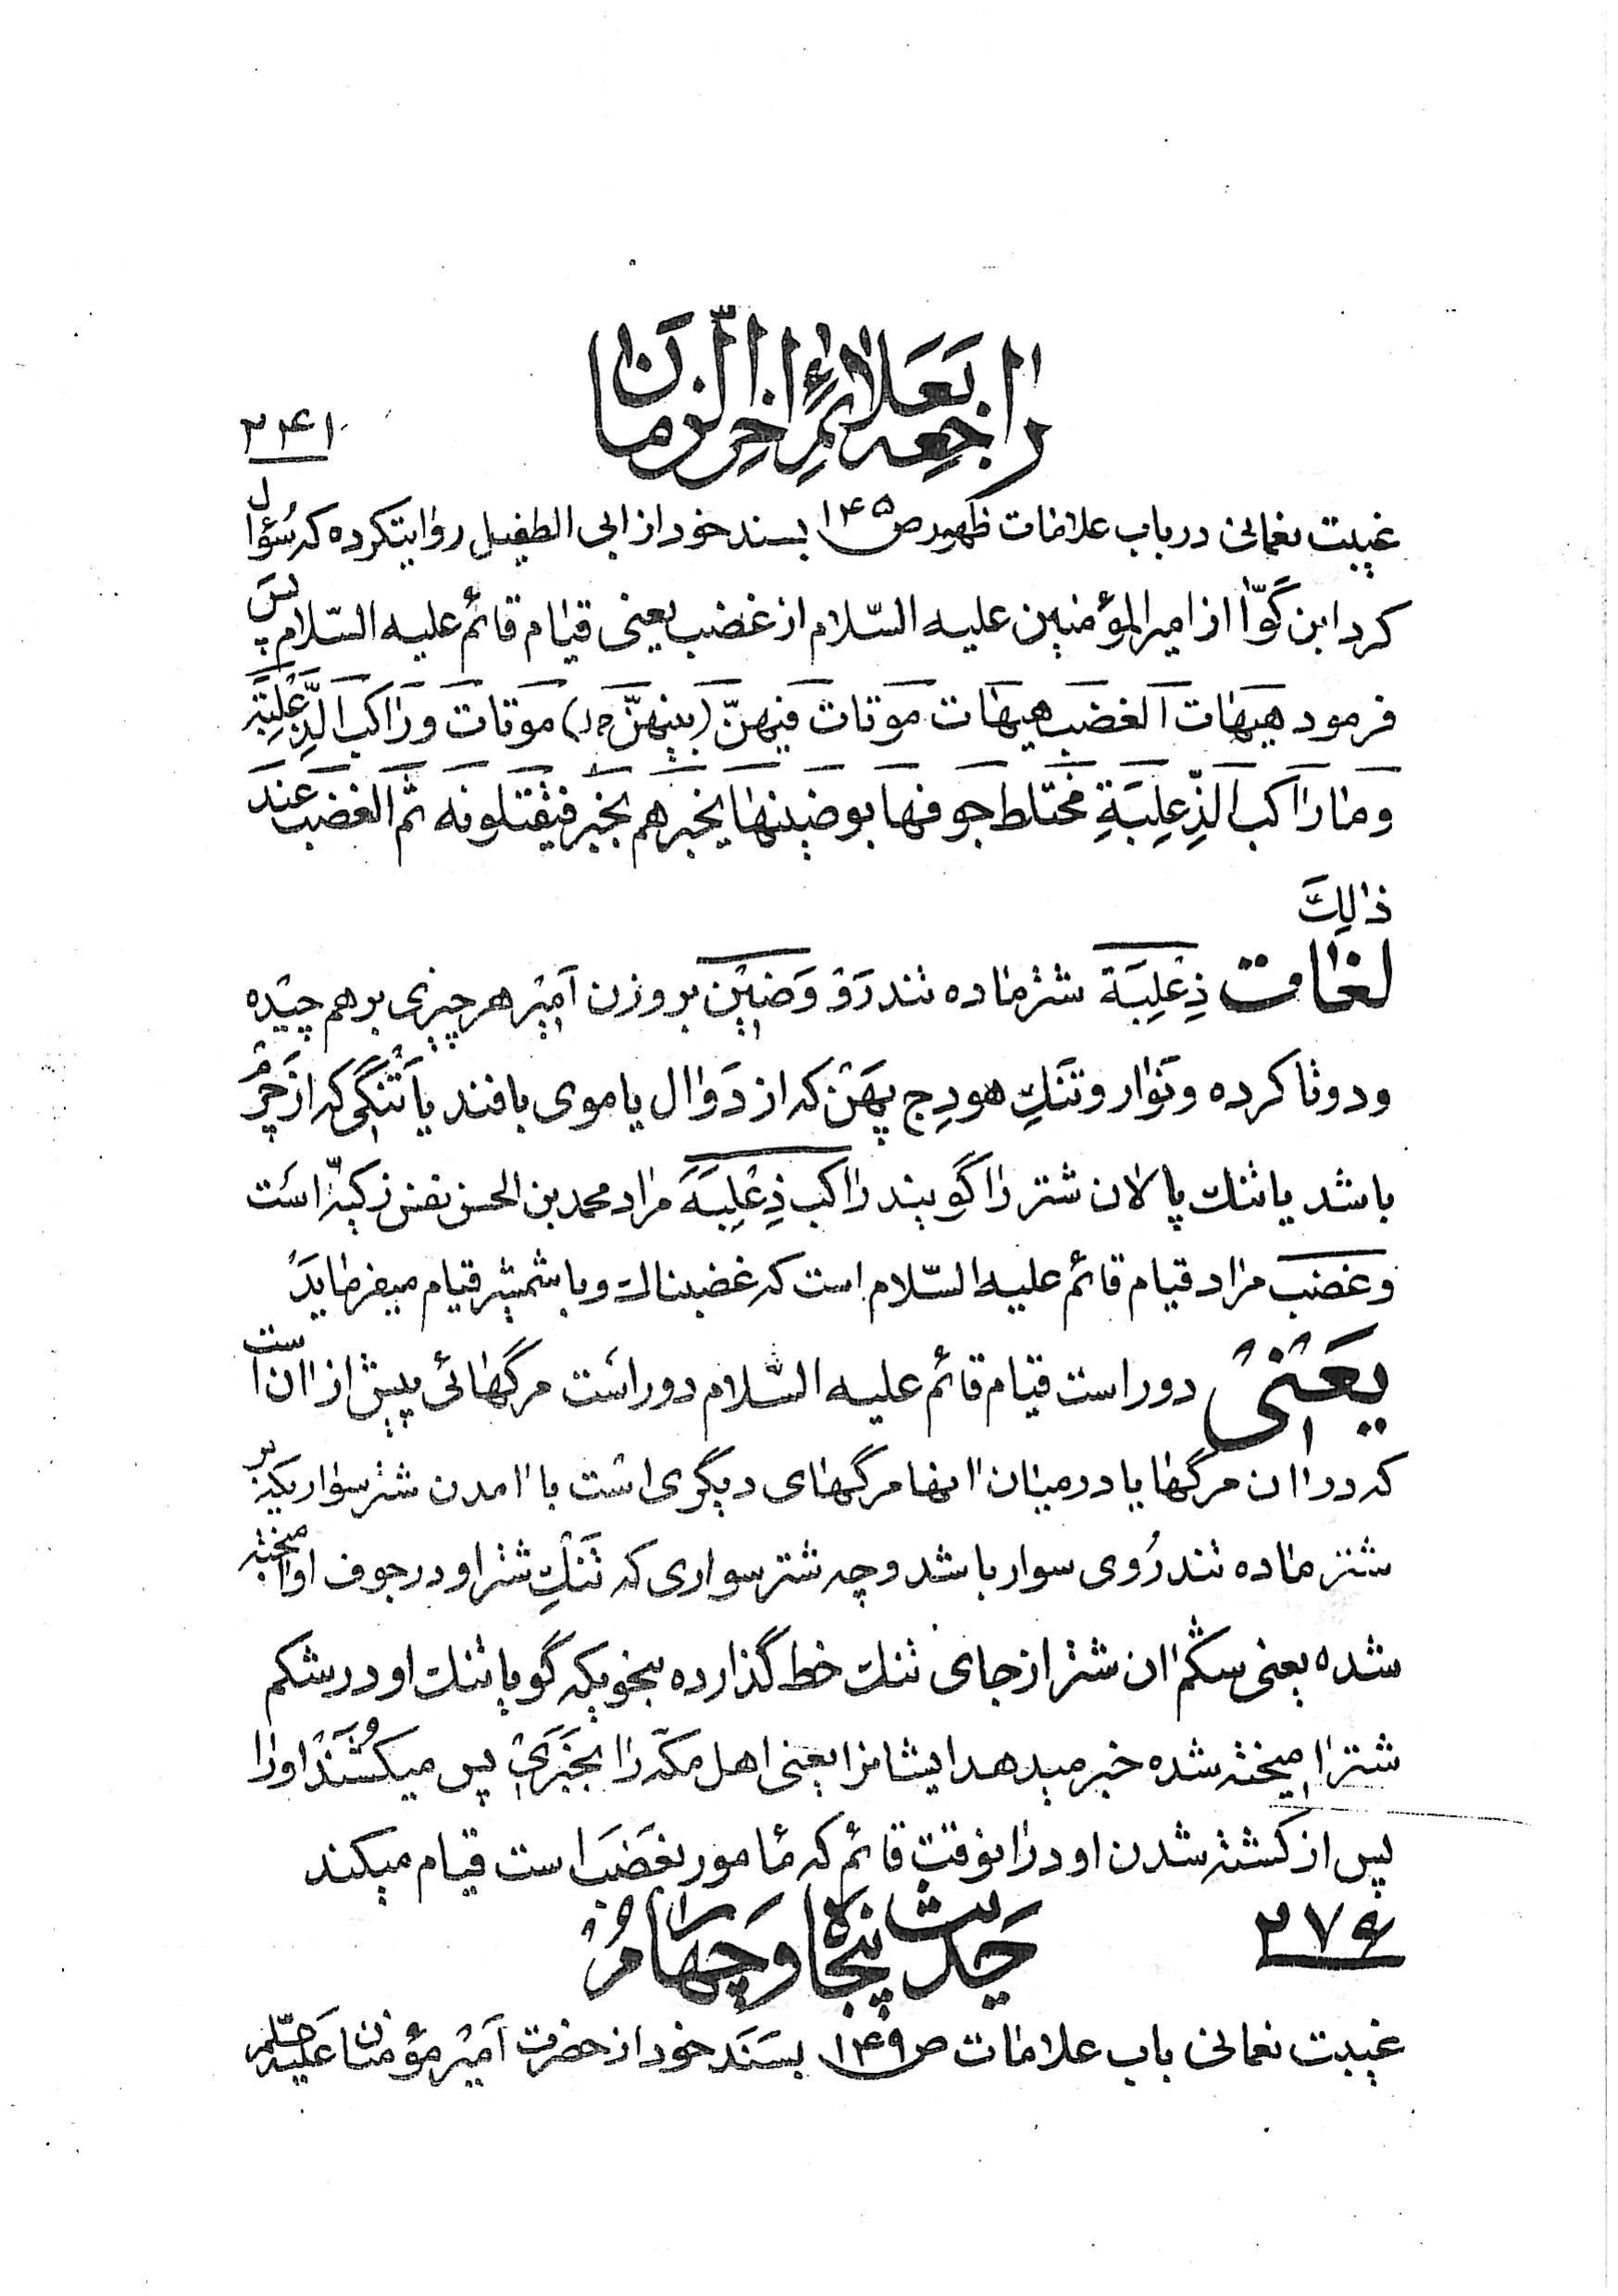 راجعه بعلائم اخر الزمان
۲۴۱
غیبت نعمانی در باب علامات ظهور ص ۱۴۵ بسند خود از ابی الطفیل روایتکرده که سُؤال
کرد ابن کوّا از امیر المؤمنین علیه السّلام از غضب یعنی قیام قائم علیه السّلام پس
فرمود هَیهات الغضب هیهات موتات فیهنّ (بینهنّ خ ل) موتات و راکب الذِّعْلِبَة
و ما راکب الذِّعلِبَةِ مختلط جوفها بوضینها یخبرهم بخبر فیقتلونه ثم الغضب عند
ذالِكَ
لغات ذِعْلِبَة شتر ماده تندرَوْ وَ وَضین بر وزن اَمیر هر چیزی بر هم چیده
و دوتا کرده و نَوار و تَنَكِ هودج پَهَنْ که از دَوال یا موی بافند یا تَنگی که از چَرْم
باشد یا تنك پالان شتر را گویند راکب ذِعْلِبَة مراد محمد بن الحسن نفس زکیّه است
و غضب مراد قیام قائم علیه السّلام است که غضبناك و با شمشیر قیام میفرماید
یَعْنی دور است قیام قائم علیه السّلام دور است مرگهائی پیش از اان است
که در اان مرگها یا در میان اانها مرگهای دیگری است با اامدن شتر سواریکه بر
شتر ماده تندرُوی سوار باشد و چه شتر سواری که تَنَكِ شتر او در جوف او اامیخته
شده یعنی شکم اان شتر از جای تنك خط گذارده بنحویکه گویا تنك او در شکم
شتر اامیخته شده خبر میدهد ایشانرا یعنی اهل مکّه را بخَبَری پس میکُشَنْد او را
پس از کشته شدن او در اانوقت قائم که مامور بغَضَب است قیام میکند
۲۷۶
حَدیث پنجاه و چهارم
غیبت نعمانی باب علامات ص ۱۴۹ بسَنَد خود از حضرت اَمیر مؤمنان عَلَیه